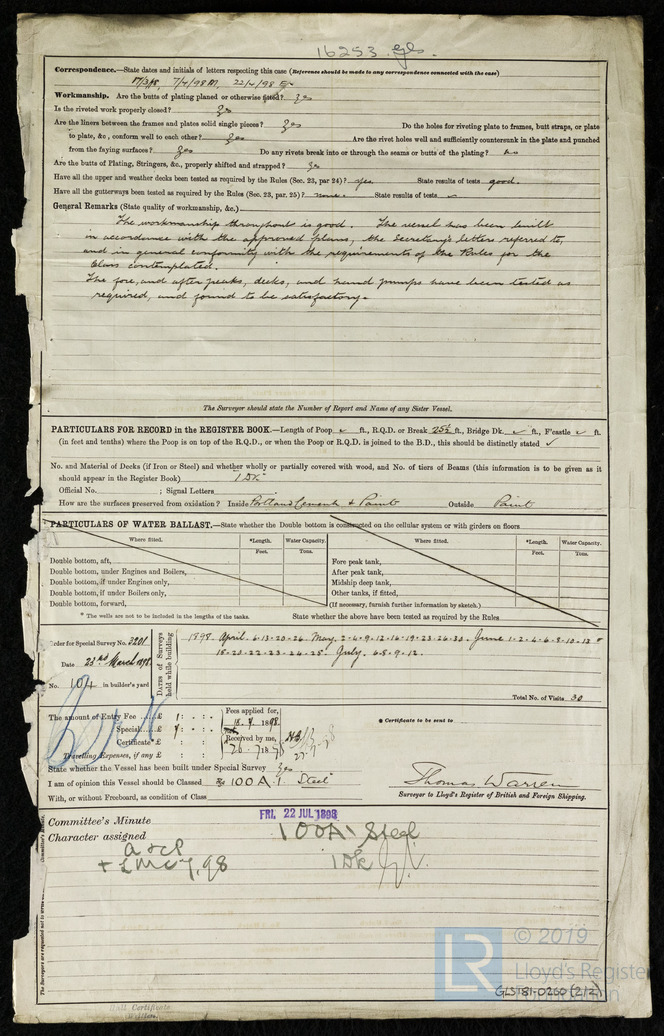 16253 gls.
Correspondence.—State dates and initials of letters respecting this case (Reference should be made to any correspondence connected with the case)
17/3/98, 7/4/98 22/4/98
Workmanship. Are the butts of plating planed or otherwise fitted? Yes
Is the riveted work properly closed? Yes
Are the liners between the frames and plates solid single pieces? Yes Do the holes for riveting plate to frames, butt straps, or plate
to plate, &c., conform well to each other? Yes Are the rivet holes well and sufficiently countersunk in the plate and punched
from the faying surfaces? Yes Do any rivets break into or through the seams or butts of the plating? No
Are the butts of Plating, Stringers, &c., properly shifted and strapped? Yes
Have all the upper and weather decks been tested as required by the Rules (Sec. 23, par 24)? yes. State results of tests good.
Have all the gutterways been tested as required by the Rules (Sec. 23, par. 25)? none. State results of tests
General Remarks (State quality of workmanship, &c.)
The workmanship throughout is good. The vessel has been built
in accordance with the approved plans, the Secretary's letters referred to,
and in general conformity with the requirements of the Rules for the
Class contemplated.
The fore, and after peaks, decks, and hand pumps have been tested as
required, and found to be satisfactory.
The Surveyor should state the Number of Report and Name of any Sister Vessel.
PARTICULARS FOR RECORD in the REGISTER BOOK.—Length of Poop ft., R.Q.D. or Break 25½ ft., Bridge Dk. ft., F'castle ft.
(in feet and tenths) where the Poop is on top of the R.Q.D., or when the Poop or R.Q.D. is joined to the B.D., this should be distinctly stated
No. and Material of Decks (if Iron or Steel) and whether wholly or partially covered with wood, and No. of tiers of Beams (this information is to be given as it
should appear in the Register Book) 1 Dk
Official No. ; Signal Letters
How are the surfaces preserved from oxidation? Inside Portland Cement & Paint Outside Paint
PARTICULARS OF WATER BALLAST.—State whether the Double bottom is constructed on the cellular system or with girders on floors
Where fitted. *Length. Water Capacity. Where fitted. *Length. Water Capacity.
Feet. Tons. Feet. Tons.
Double bottom, aft,
Double bottom, under Engines and Boilers,
Double bottom, if under Engines only,
Double bottom, if under Boilers only,
Double bottom, forward,
Fore peak tank,
After peak tank,
Midship deep tank,
Other tanks, if fitted,
(If necessary, furnish further information by sketch.)
* The wells are not to be included in the lengths of the tanks. State whether the above have been tested as required by the Rules
Order for Special Survey No. 3201
Date 23rd March 1898
No. 104 in builder's yard
DATES of Surveys held while building
1898. April. 6-13-20-26 May. 2-4-9-12-16-19-23-26-30. June 1-2-4-6-8-10-13
18-20-22-23-24-25. July. 6-8-9-12.
Total No. of Visits 30
The amount of Entry Fee .... £ 1 : :
Special .... £ 9 : :
Certificate* .. £ : :
Travelling Expenses, if any £ : :
Fees applied for,
18.7.1898.
Received by me,
* Certificate to be sent to
State whether the Vessel has been built under Special Survey Yes
I am of opinion this Vessel should be Classed 100 A 1. Steel
With, or without Freeboard, as condition of Class
Thomas Warren
Surveyor to Lloyd's Register of British and Foreign Shipping.
Committee's Minute
FRI. 22 JUL 1898
Character assigned
100A1 Steel
1 Dk
A & CP
+ LMC 7,98
Hull Certificate
Written
© 2019
LR
Lloyd's Register
Foundation
GLST81-0260 (2/2)